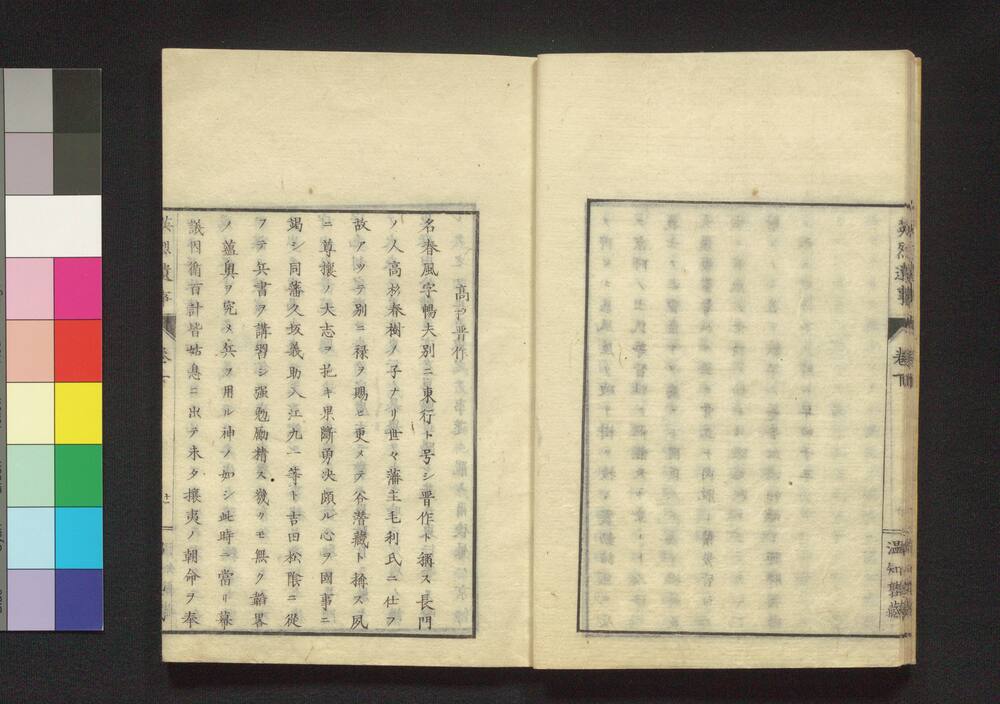 英烈遺事
卷一
溫知書蔵
高杉晋作
名春風字暢夫別ニ東行ト号シ晋作ト稱ス長門
ノ人高杉春樹ノ子ナリ世々藩主毛利氏ニ仕フ
故アツテ別ニ禄ヲ賜ヒ更メテ谷潜藏ト稱ス夙
ニ尊攘ノ大志ヲ抱キ果斷勇决頗ル心ヲ國事ニ
竭シ同藩久坂義助入江九一等ト吉田松陰ニ從
フテ兵書ヲ講習シ强勉勵精ス幾クモ無ク韜畧
ノ蘊奥ヲ究メ兵ヲ用ル神ノ如シ此時ニ當リ幕
議因循百計皆姑息ニ出テ未タ攘夷ノ朝命ヲ奉
英烈遺事
卷一
十一